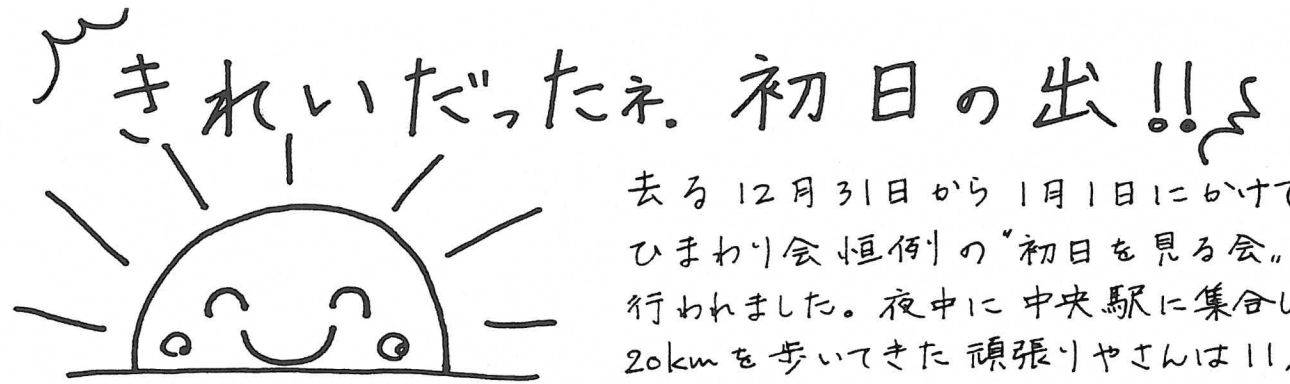 きれいだったネ. 初日の出!!
去る12月31日から1月1日にかけて
ひまわり会恒例の〝初日を見る会〟
行われました。夜中に中央駅に集合し
20kmを歩いてきた頑張りやさんは11,